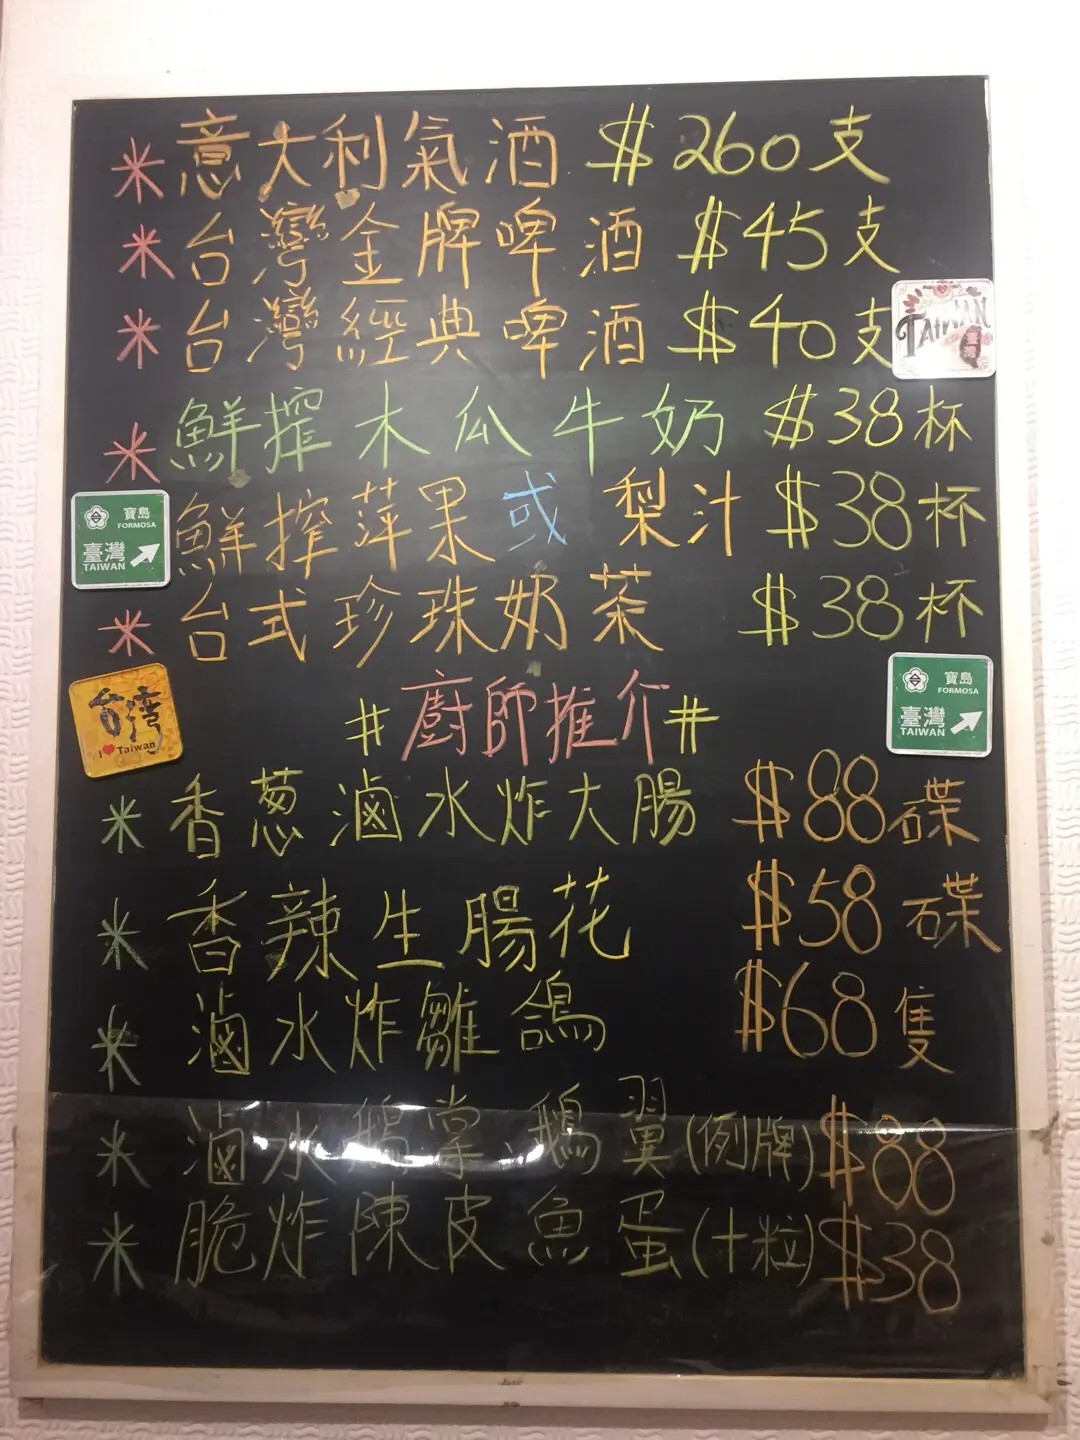 * 意大利氣酒 $260支
* 台灣金牌啤酒 $45支
* 台灣經典啤酒 $40支
TAIWAN
臺灣
* 鮮搾木瓜牛奶 $38杯
鮮搾萍果或梨汁 $38杯
寶島
FORMOSA
臺灣
TAIWAN
* 台式珍珠奶茶 $38杯
台灣
I ❤ Taiwan
#廚師推介#
寶島
FORMOSA
臺灣
TAIWAN
* 香葱滷水炸大腸 $88碟
* 香辣生腸花 $58碟
* 滷水炸雛鴿 $68隻
* 滷水鵝掌、鵝翼(例牌) $88
* 脆炸陳皮魚蛋(十粒) $38